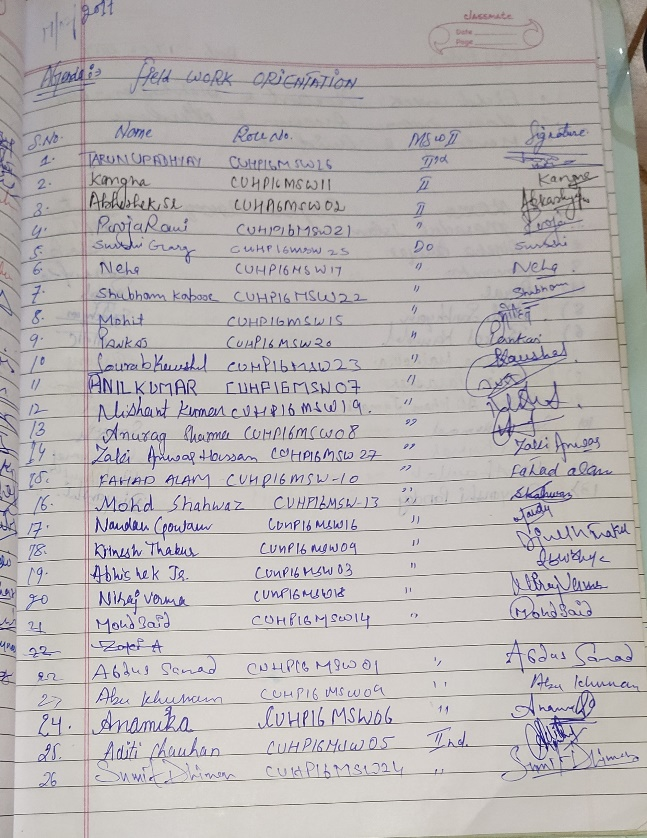 classmate
Date
Page
Agenda:- Field WORK ORIENTATION
S.No. Name Roll No. MSW II Signature
1. TARUN UPADHYAY CUHP16MSW26 IInd
2. Kangna CUHP16MSW11 II Kangna
3. Abhishek.Sr CUHP16MSW02 II
4. Pooja Rani CUHP16MSW21 " Pooja
5. Surbhi Garg CUHP16MSW25 Do Surbhi
6. Neha CUHP16MSW17 " Neha
7. Shubham Kapoor CUHP16MSW22 " Shubham
8. Mohit CUHP16MSW15 " मोहित
9. Pankaj CUHP16MSW20 " Pankaj
10 Sourab Kaushal CUHP16MSW23 " Kaushal
11 ANIL KUMAR CUHP16MSW07 "
12 Nishant Kumar CUHP16MSW19. "
13 Anurag Sharma CUHP16MSW08 "
14. Zaki Anwar Hassan CUHP16MSW27 " Zaki Anwar
15. FAHAD ALAM CUHP16MSW-10 " Fahad alam
16. Mohd Shahwaz CUHP16MSW-13 " Shahwaz
17. Nandan Gautam CUHP16MSW16 "
18. Dinesh Thakur CUHP16MSW09 "
19. Abhishek Jr. CUHP16MSW03 "
20 Niraj Verma CUHP16MSW18 " Niraj Verma
21 Mohd Said CUHP16MSW14 " Mohd Said
22 Zaki A
22 Abdus Samad CUHP16MSW01 " Abdus Samad
23 Abu Khunam CUHP16MSW04 " Abu Khunam
24. Anamika CUHP16MSW06 "
25. Aditi Chauhan CUHP16MSW05 IInd.
26 Sumit Dhiman CUHP16MSW24 " Sumit Dhiman